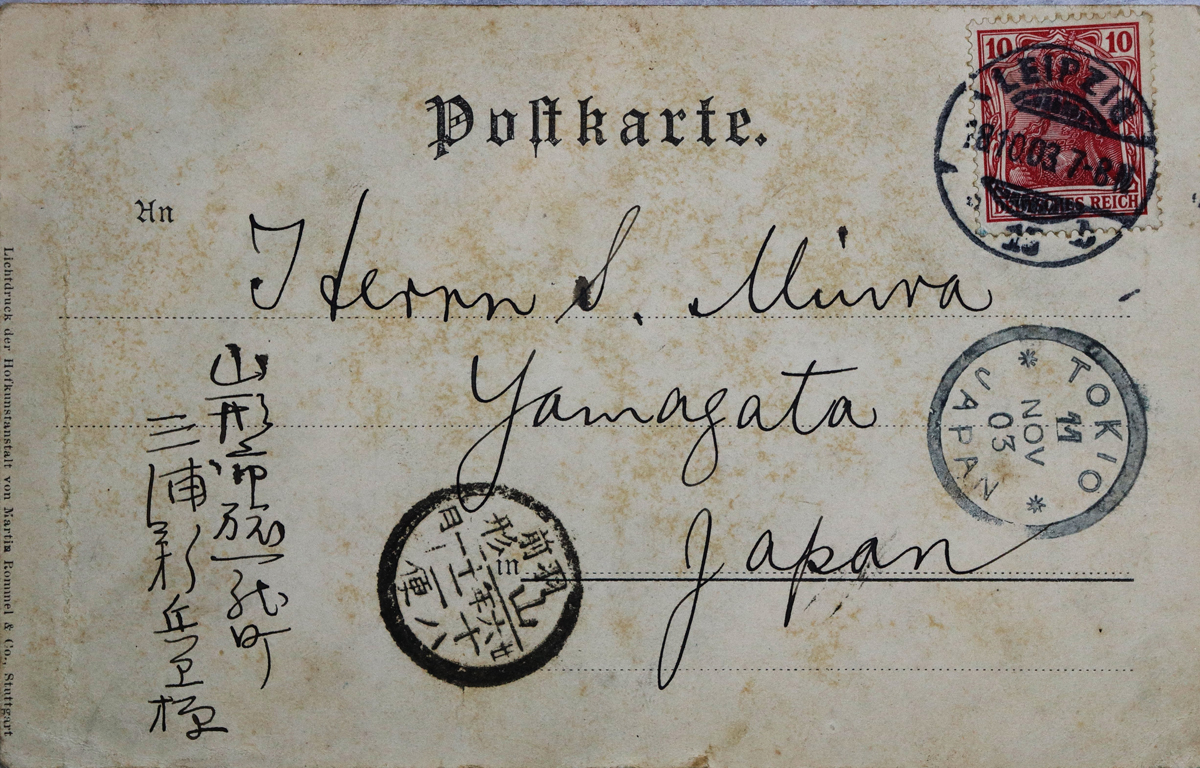 Postkarte.
10 10
LEIPZIG
18.10.03. 7-8 N.
DEUTSCHES REICH
An
Herrn S. Miura
Yamagata
Japan
in
TOKIO
11
NOV
03
JAPAN
山形市旅籠町
三浦弥兵衛様
羽前
山形
廿六年
十一月十
八便
Lichtdruck der Hofkunstanstalt von Martin Rommel & Co., Stuttgart